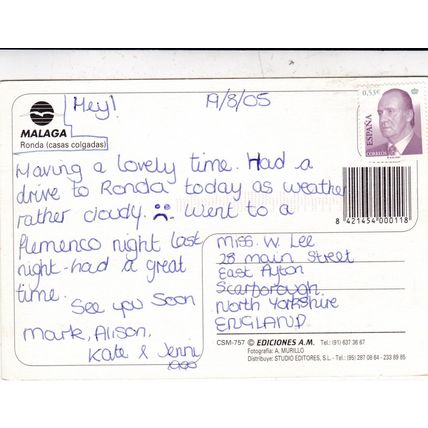 Hey!
19/8/05
MALAGA
Ronda (casas colgadas)
0,53€
ESPAÑA
CORREOS
Having a lovely time. Had a
drive to Ronda today as weather
rather cloudy. Went to a
flemenco night last
night - had a great
time.
See you soon
Mark, Alison,
Kate & Jenni
8 421454 000118
Miss. W. Lee
28 main Street
East Ayton
Scarborough
North Yorkshire
ENGLAND
CSM-757 © EDICIONES A.M. Tel.: (91) 637 36 67
Fotografía: A. MURILLO
Distribuye: STUDIO EDITORES, S.L. - Tel.: (95) 287 08 64 - 233 89 85